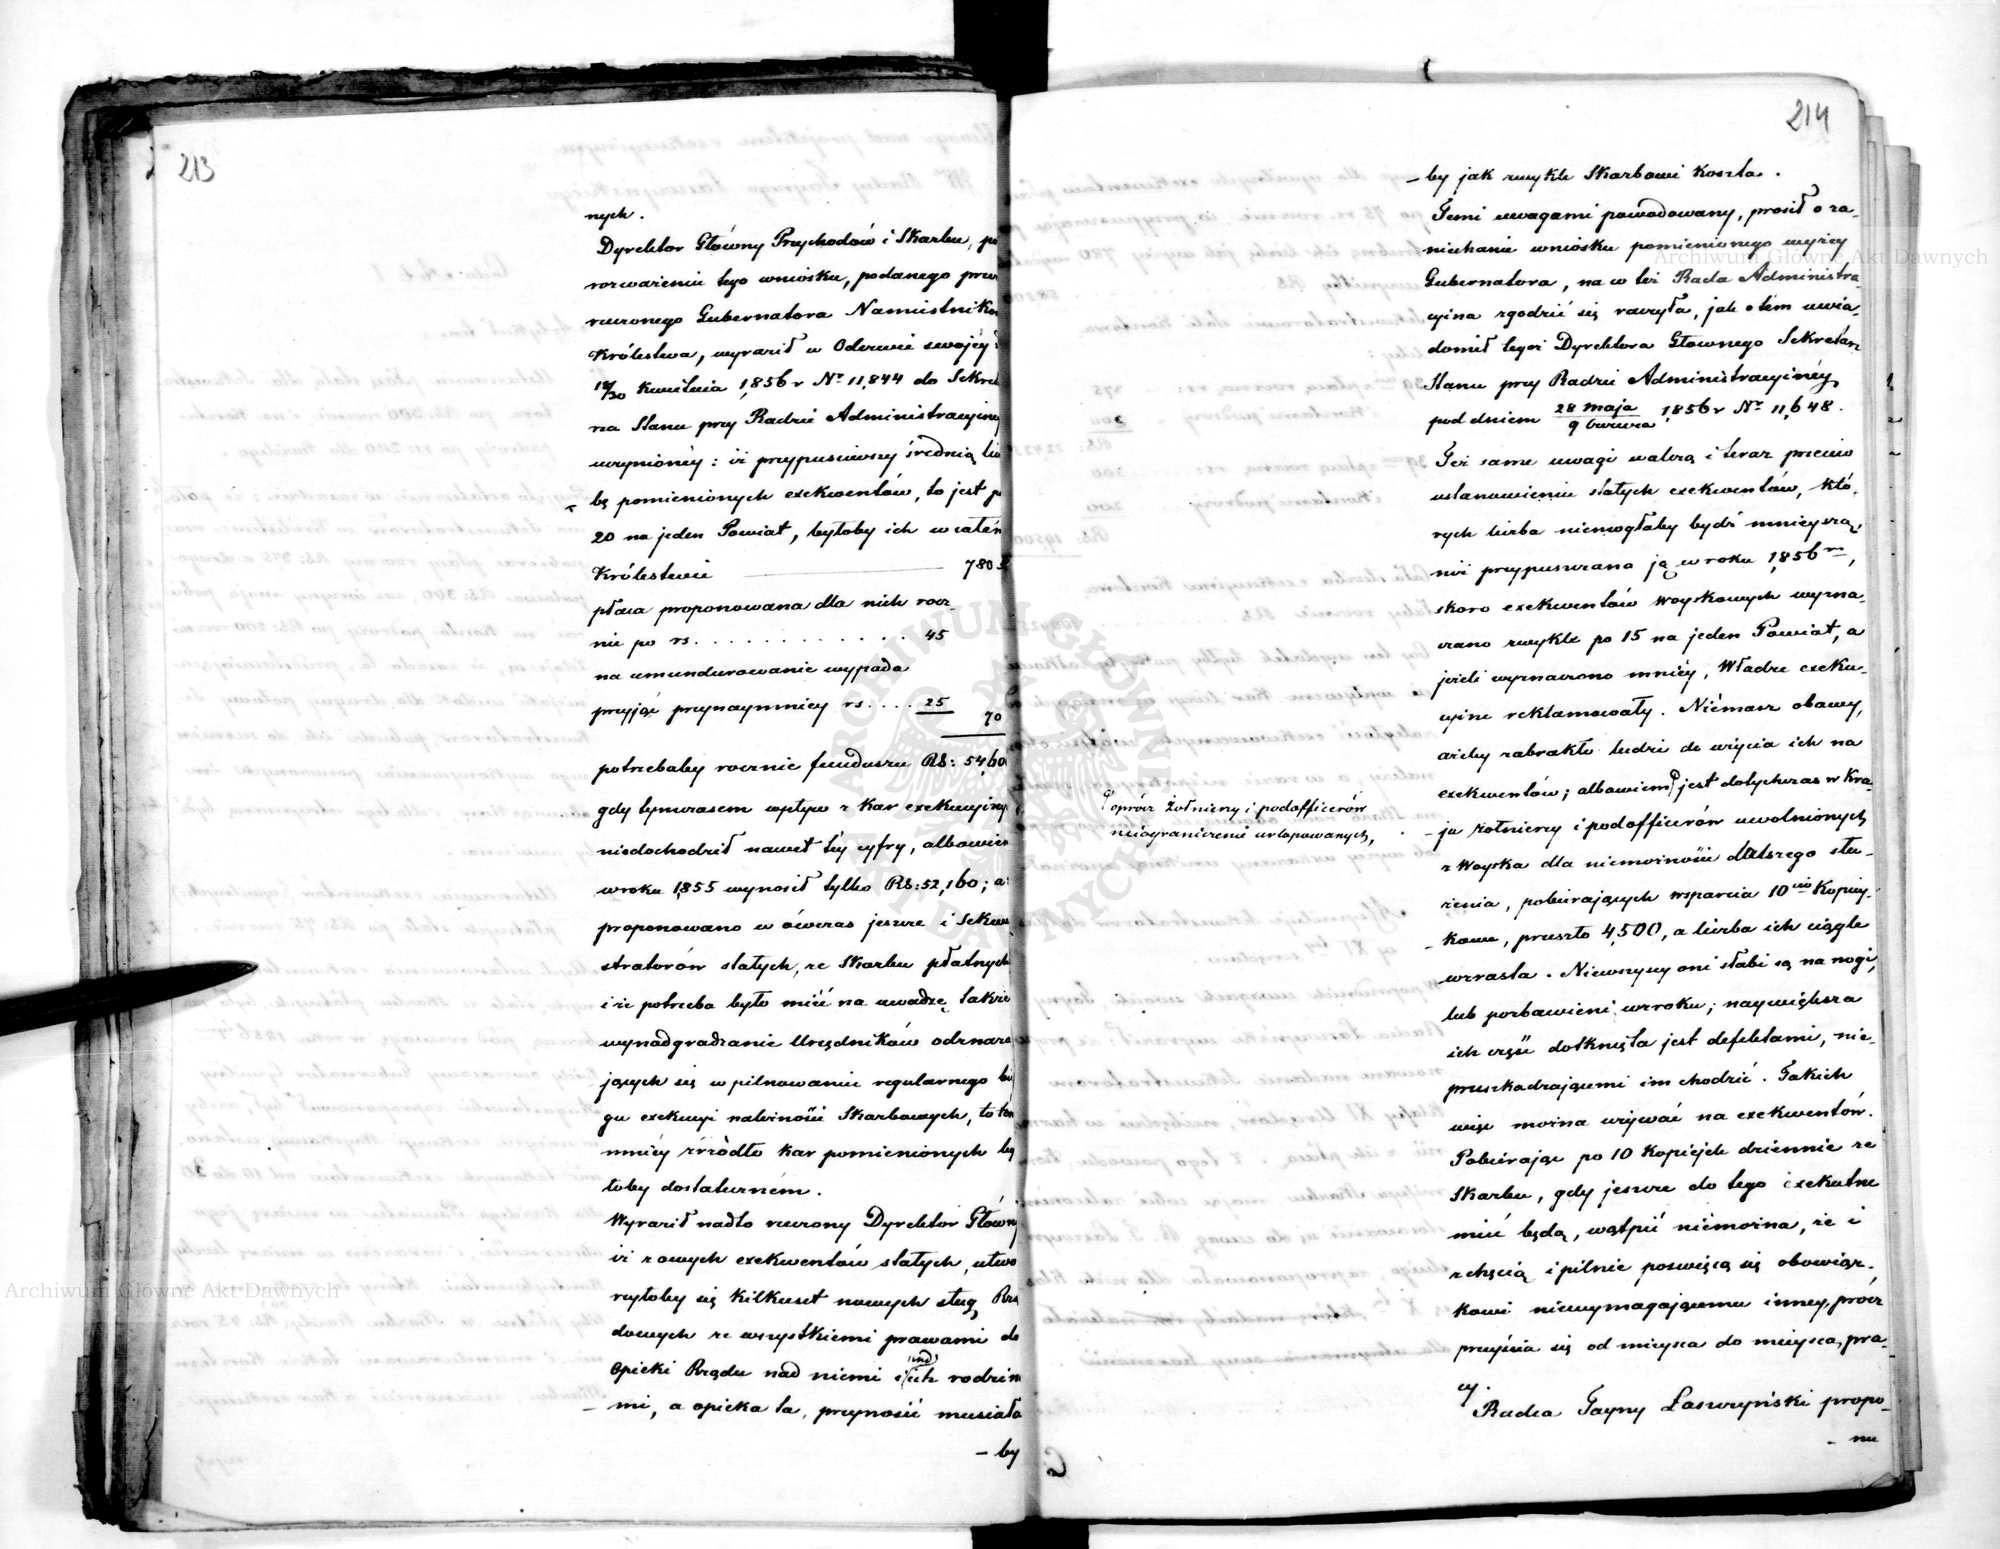 213
nych.
Dyrektor Główny Przychodów i Skarbu, po
rozważeniu tego wniosku, podanego przez
rzeczonego Gubernatora Namiestnikowi
Królestwa, wyraził w Odezwie swojéj z
18/30 Kwietnia 1,856 r Nr 11,844 do Sekreta
rza Stanu przy Radzie Administracyjnej
uczynionéj: iż przypuściwszy średnią licz
bę pomienionych exekwentów, to jest po
20 na jeden Powiat, byłoby ich w całém
Królestwie 780
płaca proponowana dla nich rocz-
nie po rs. . . . . . . . . . . . . 45
na umundurowanie wypada
przyjąć przynaymniey rs. . . . 25
70
potrzebaby rocznie funduszu RS: 54,600
gdy tymczasem wpływ z kar exekucyjnych
niedochodził nawet téy cyfry, albowiem
w roku 1,855 wynosił tylko RS: 52,160; a
proponowano w ówczas jeszcze i Sekwe
stratorów stałych, ze Skarbu płatnych
i że potrzeba było mieć na uwadze także
wynadgradzanie Urzędników odznacza
jących się w pilnowaniu regularnego bie
gu exekucyi należności Skarbowych, to tém
mniéy źrzódło kar pomienionych by
łoby dostateczném.
Wyraził nadto rzeczony Dyrektor Główny
iż z owych exekwentów stałych, utwo
rzyłoby się kilkuset nowych sług Rzą
dowych ze wszystkiemi prawami do
opieki Rządu nad niemi i nad ich rodzina
– mi, a opieka ta, przynosić musiała
– by
214
– by jak zwykle Skarbowi koszta.
Temi uwagami powodowany, prosił o za-
niechanie wniosku pomienionego wyżéy
Gubernatora, na co też Rada Administra-
cyjna zgodzić się raczyła, jak o tém uwia-
domił tegoż Dyrektora Głównego Sekretarz
Stanu przy Radzie Administracyjnéy
pod dniem 28 Maja / 9 Czerwca 1,856 r Nr 11,648.
Też same uwagi walczą i teraz przeciw
ustanowieniu stałych exekwentów, któ-
rych liczba niemogłaby bydź mnieyszą,
niż przypuszczana ją w roku 1,856m,
skoro exekwentów Woyskowych wyzna-
czano zwykle po 15 na jeden Powiat, a
jeżeli wyznaczono mniéy, Władze exeku-
cyjne reklamowały. Niémasz obawy,
ażeby zabrakło ludzi do użycia ich na
exekwentów; albowiem jest dotychczas w Kra-
oprócz Żołnierzy i podofficerów
nieograniczenie urlopowanych,
– ju żołnierzy i podofficerów uwolnionych
z Woyska dla niemożności dalszego słu-
żenia, pobierających wsparcia 10cio Kopiéy-
– kowe, przeszło 4,500, a liczba ich ciągle
wzrasta. Niewszyscy oni słabi są na nogi,
lub pozbawieni wzroku; naywiększa
ich część dotknięta jest defektami, nie-
przeszkadzającemi im chodzić. Takich
więc można używać na exekwentów.
Pobierając po 10 Kopiéjek dziennie ze
Skarbu, gdy jeszcze do tego exekutne
mieć będą, wątpić niémożna, że i
z chęcią i pilnie poświęcą się obowiąz-
kowi niewymagającemu innéy, prócz
przejścia się od mieysca do mieysca, pra-
cy.
Radca Tayny Łaszczyński propo-
– nu
Archiwum Główne Akt Dawnych
Archiwum Główne Akt Dawnych
ARCHIWUM GŁÓWNE AKT DAWNYCH